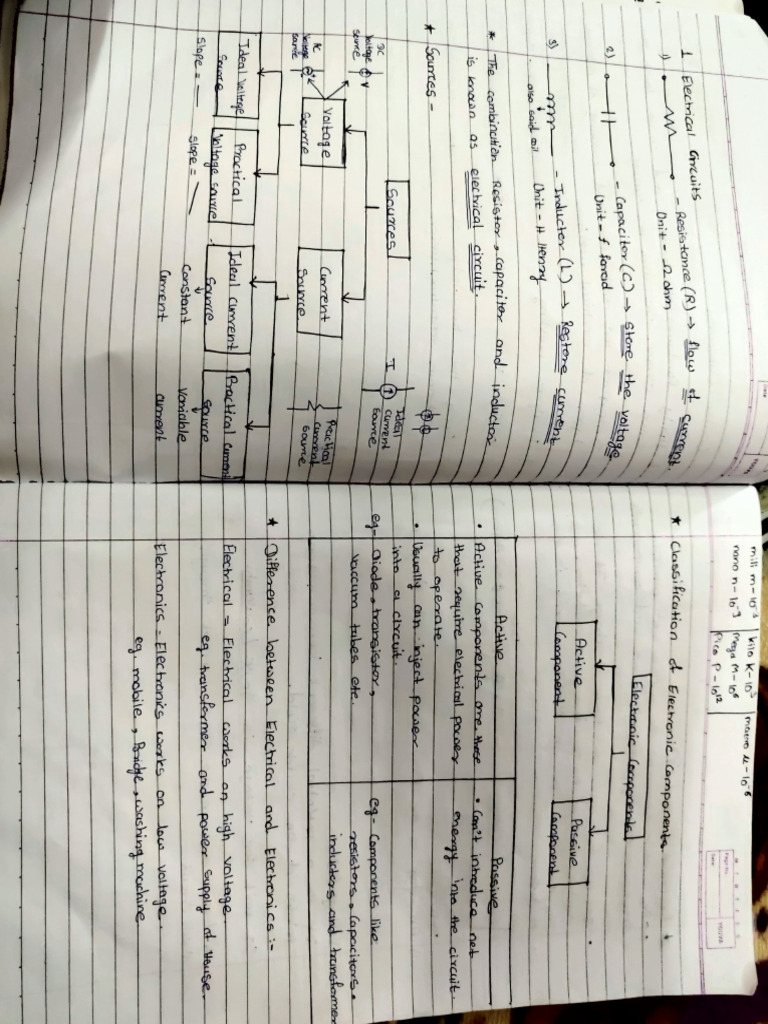 1. Electrical Circuits
1) - Resistance (R) → flow of current.
Unit - Ω ohm
2) - Capacitor (C) → Store the voltage
Unit - f farad
3) - Inductor (L) → Restore current
also said coil Unit - H Henry
* The combination Resistor, capacitor and inductor
is known as electrical circuit.
* Sources -
Sources
DC
Voltage
source
V
AC
Voltage
source
Voltage
Source
Current
Source
I
Ideal
current
Source
Practical
current
source
Ideal Voltage
Source
Practical
Voltage source
Ideal current
Source
Practical current
Source
slope =
slope =
Constant
current
Variable
current
milli m - 10⁻³
nano n - 10⁻⁹
kilo K - 10³
Mega M - 10⁶
Pico P - 10¹²
micro µ - 10⁻⁶
* Classification of Electronic Components
Electronic Components
Active
Component
Passive
Component
Active
• Active components are those
that require electrical power
to operate.
• Usually can inject power
into a circuit.
eg - Diode, transistor,
vaccum tubes etc.
Passive
• Can't introduce net
energy into the circuit.
eg - Components like
resistors, capacitors,
inductors and transformer
* Difference between Electrical and Electronics :-
Electrical = Electrical works on high voltage.
eg. transformer and power supply of House.
Electronics - Electronics works on low voltage.
eg. mobile, Fridge, washing machine